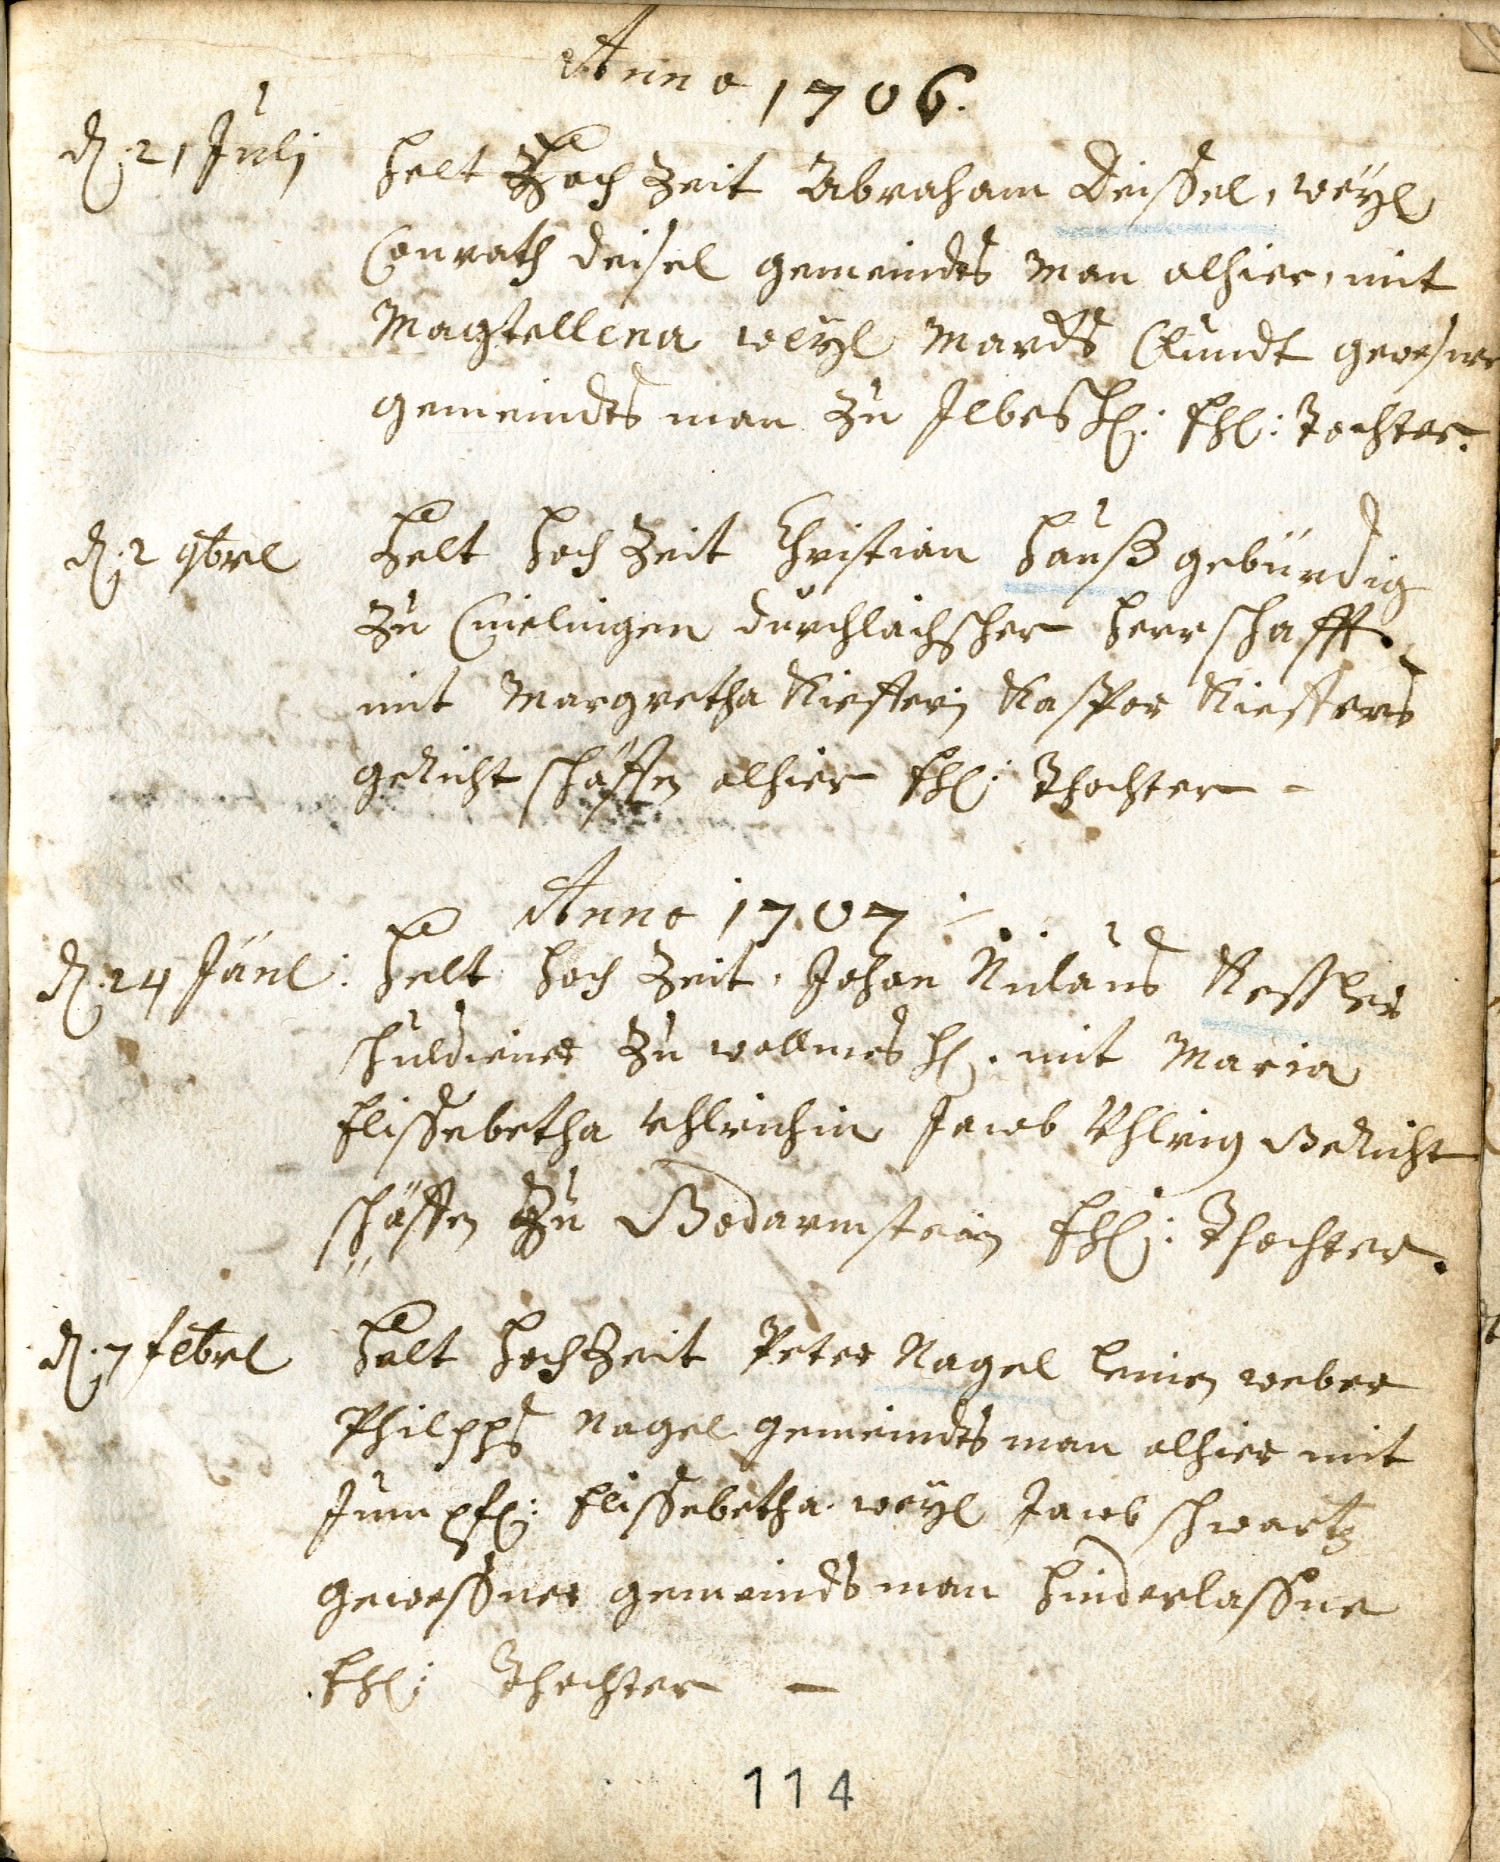 Anno 1706.
d. 21 Julij helt Hoch Zeit Abraham Deissel, weÿl
Conrath Deisel gemeindts Man alhier, mit
Magtellena weÿl Mardts Clundt gewesner
gemeindts man Zu Ilbesh: Ehl: Tochter.
d. 2 9brl helt Hoch Zeit Christian Hauß gebürdig
Zu Cnielingen durchlachscher herrschafft
mit Margretha Kiefferin Kasper Kieffers
gericht schäffen alhier Ehl: Thochter -
Anno 1707
d. 24 Janl: helt Hoch Zeit, Johan Niclaus Kessler
schuldiener Zu wollmesh. mit Maria
Elissebetha Uhlrichin Jacob Uhlrig Gericht
schäffen Zu Godarmstein Ehl: Thochter.
d. 7 febrl helt Hoch Zeit Peter Nagel leinen weber
Philpps Nagel gemeindts man alhier mit
Jumpfr: Elissebetha weÿl Jacob schwartz
gewessner gemeinds man hinderlassne
Ehl: Thochter —
114